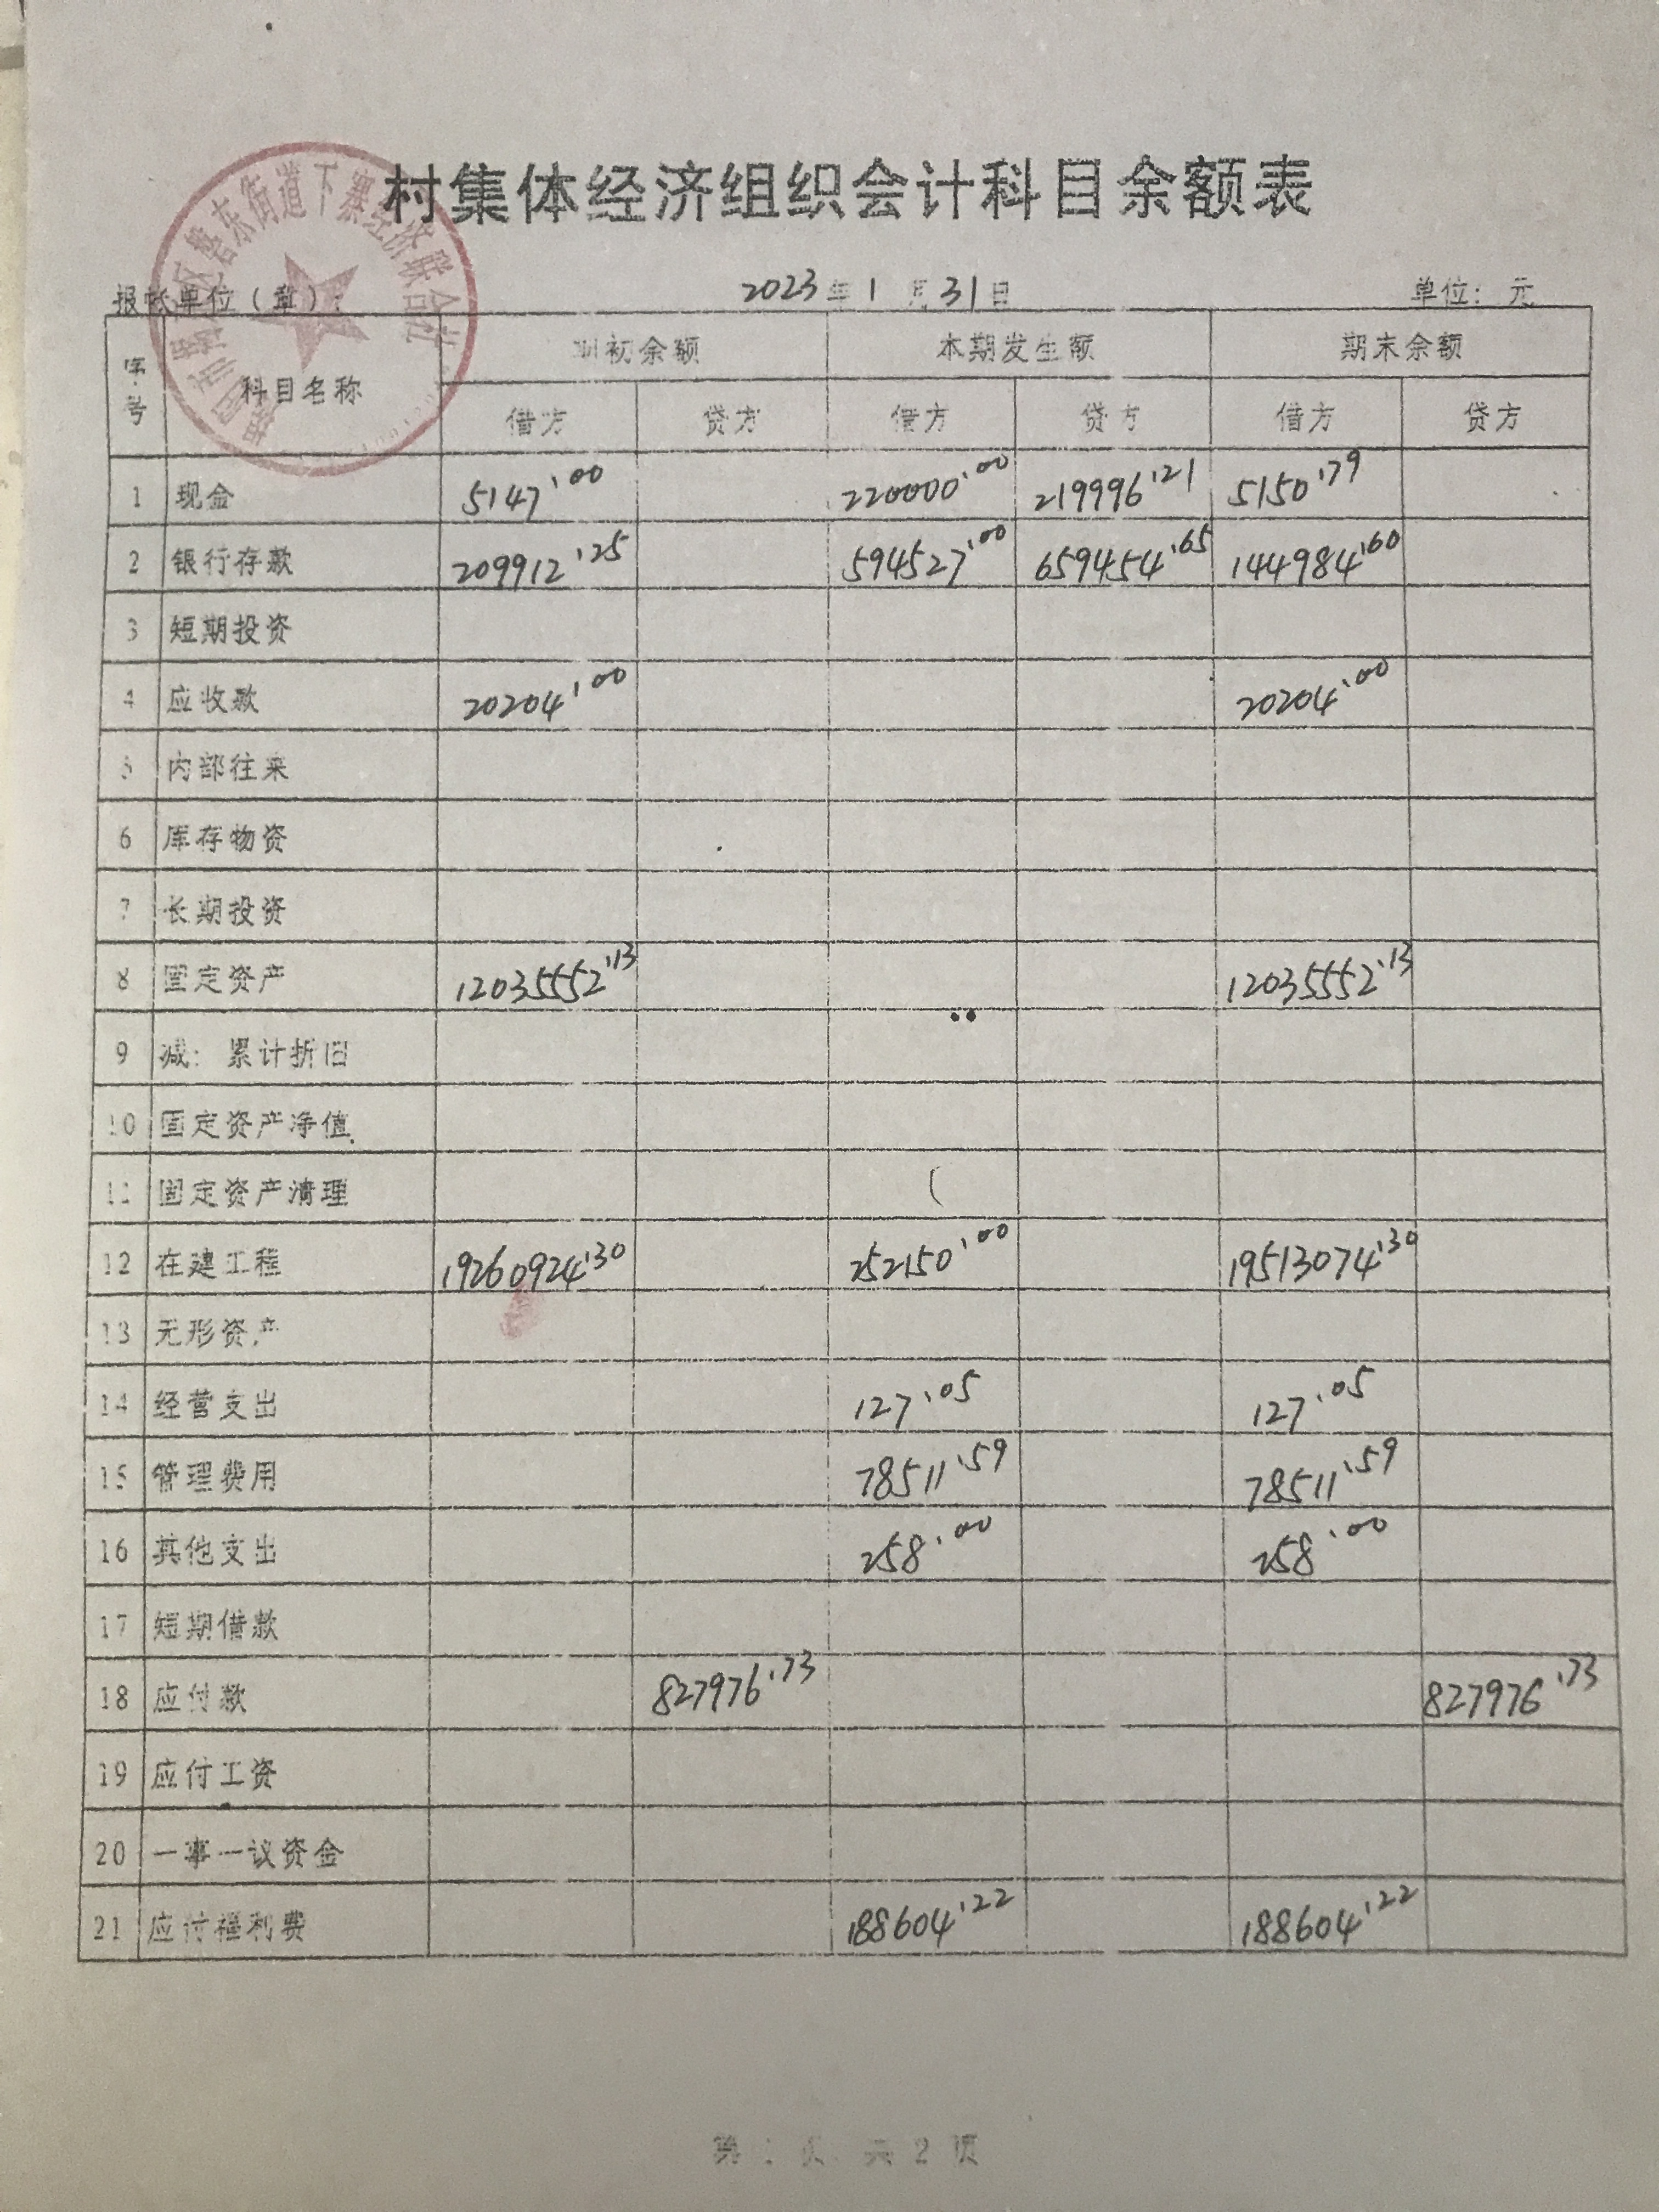 村集体经济组织会计科目余额表
磐东街道下寨经济联合社
报帐单位（章）： 2023年1月31日 单位：元
序号 科目名称 期初余额 本期发生额 期末余额
借方 贷方 借方 贷方 借方 贷方
1 现金 5147.00 220000.00 219996.21 5150.79
2 银行存款 209912.25 594527.00 659454.65 144984.60
3 短期投资
4 应收款 20204.00 20204.00
5 内部往来
6 库存物资
7 长期投资
8 固定资产 12035552.13 12035552.13
9 减：累计折旧
10 固定资产净值
11 固定资产清理
12 在建工程 19260924.30 252150.00 19513074.30
13 无形资产
14 经营支出 127.05 127.05
15 管理费用 78511.59 78511.59
16 其他支出 258.00 258.00
17 短期借款
18 应付款 827976.73 827976.73
19 应付工资
20 一事一议资金
21 应付福利费 188604.22 188604.22
第1页 共2页